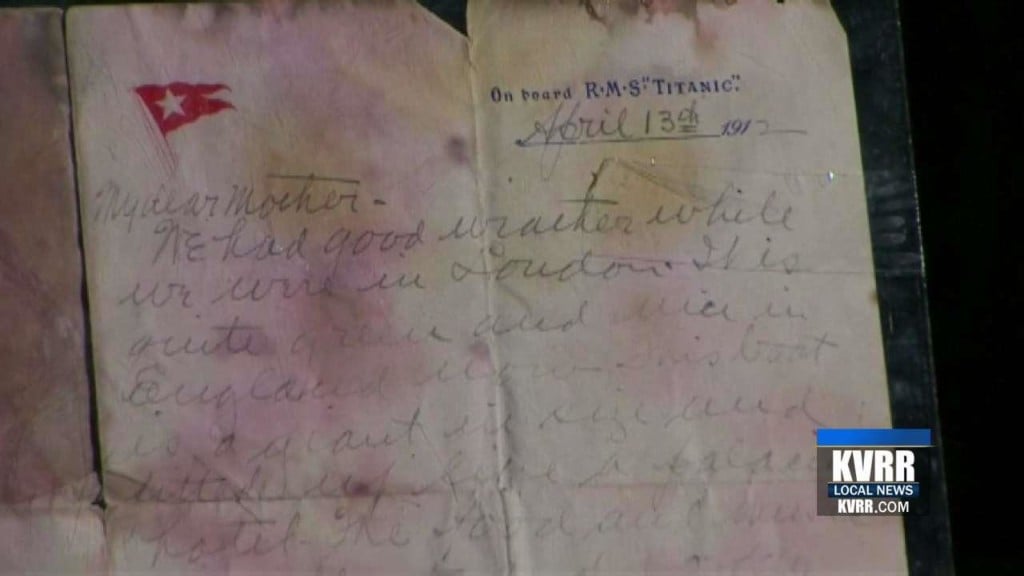 On board R·M·S "TITANIC".
April 13th 1912
My dear Mother -
We had good weather while
we were in London. It is
quite green and nice in
England now. This boat
is a giant in size and
fitted up like a palacial
hotel. The food and music
KVRR
LOCAL NEWS
KVRR.COM